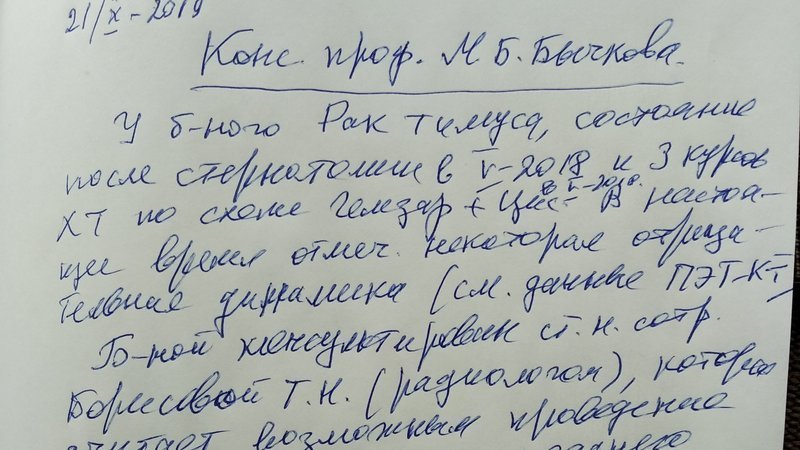 21/X-2019
Конс. проф. М. Б. Бычкова.
У б-ного Рак тимуса, состояние
после стернотомии в V-2018 и 3 курсов
ХТ по схеме Гемзар + Цис- В настоя-
щее время отмеч. некоторая отрица-
тельная динамика (см. данные ПЭТ-КТ)
Б-ной консультирован ст. н. сотр.
Борисовой Т.Н. (радиологом), которая
считает возможным проведение